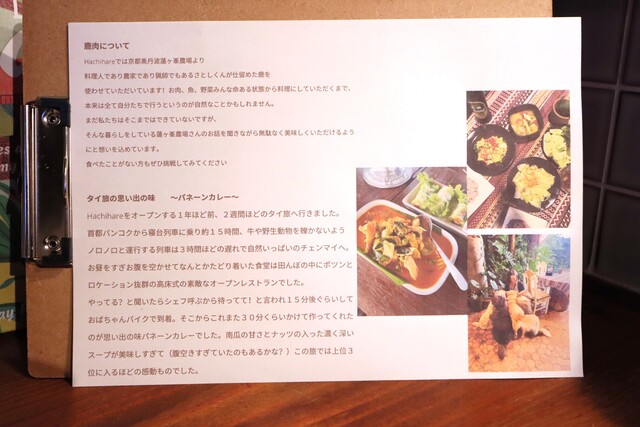 鹿肉について
Hachihareでは京都奥丹波蓮ヶ峯農場より
料理人であり農家であり猟師でもあるさとしくんが仕留めた鹿を
使わせていただいています！お肉、魚、野菜みんな命ある状態から料理にしていただくまで、
本来は全て自分たちで行うというのが自然なことかもしれません。
まだ私たちはそこまではできていないですが、
そんな暮らしをしている蓮ヶ峯農場さんのお話を聞きながら無駄なく美味しくいただけるよう
にと想いを込めています。
食べたことがない方もぜひ挑戦してみてください
タイ旅の思い出の味　～パネーンカレー～
Hachihareをオープンする１年ほど前、２週間ほどのタイ旅へ行きました。
首都バンコクから寝台列車に乗り約１５時間、牛や野生動物を轢かないよう
ノロノロと運行する列車は３時間ほどの遅れで自然いっぱいのチェンマイへ。
お昼をすぎお腹を空かせてなんとかたどり着いた食堂は田んぼの中にポツンと
ロケーション抜群の高床式の素敵なオープンレストランでした。
やってる？と聞いたらシェフ呼ぶから待ってて！と言われ１５分後ぐらいして
おばちゃんバイクで到着。そこからこれまた３０分くらいかけて作ってくれた
のが思い出の味パネーンカレーでした。南瓜の甘さとナッツの入った濃く深い
スープが美味しすぎて（腹空きすぎていたのもあるかな？）この旅では上位３
位に入るほどの感動ものでした。